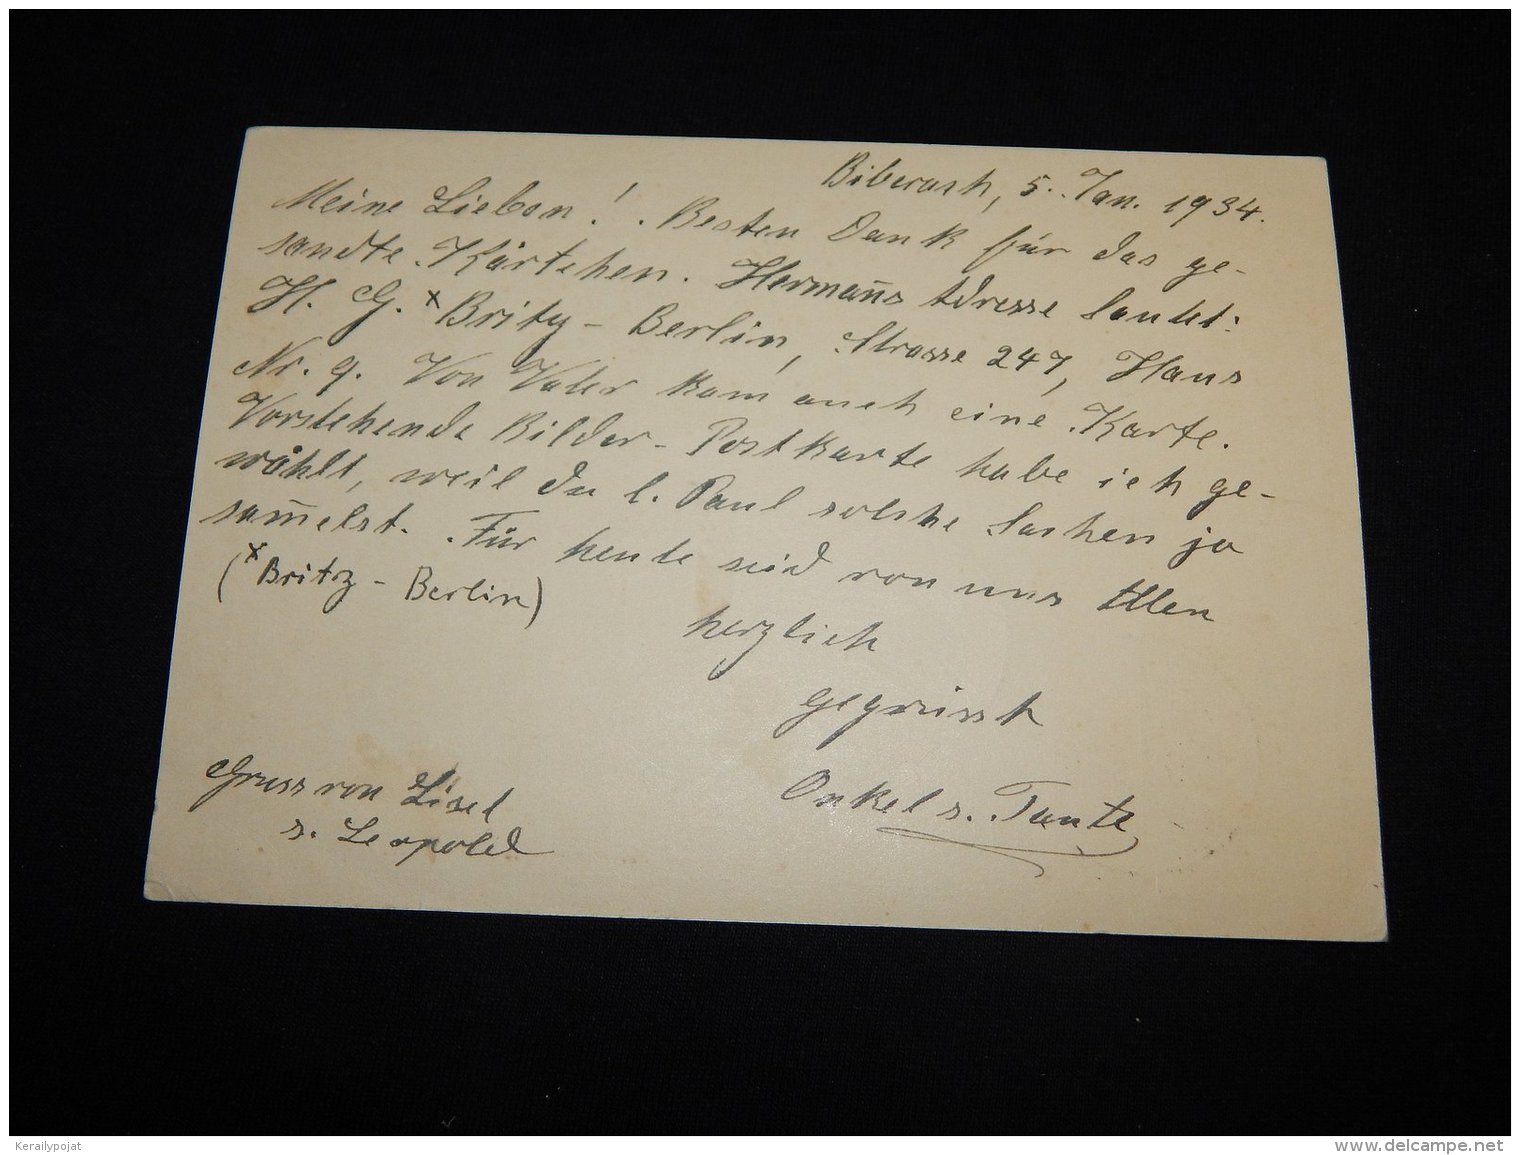 Biberach, 5. Jan. 1934.
Meine Lieben! . Besten Dank für das ge-
sandte Kärtchen. Hermañs Adresse lautet:
H. G. x Britz - Berlin, Strasse 247, Haus
Nr. 9. Von Vater kam auch eine Karte.
Vorstehende Bilder-Postkarte habe ich ge-
wählt, weil du l. Paul solche Sachen ja
sam̄elst. Für heute seid von uns Allen
(x Britz - Berlin)
herzlich
gegrüsst
Onkel u. Tante
Gruss von Lisel
u. Leopold
Kerailypojat
www.delcampe.net